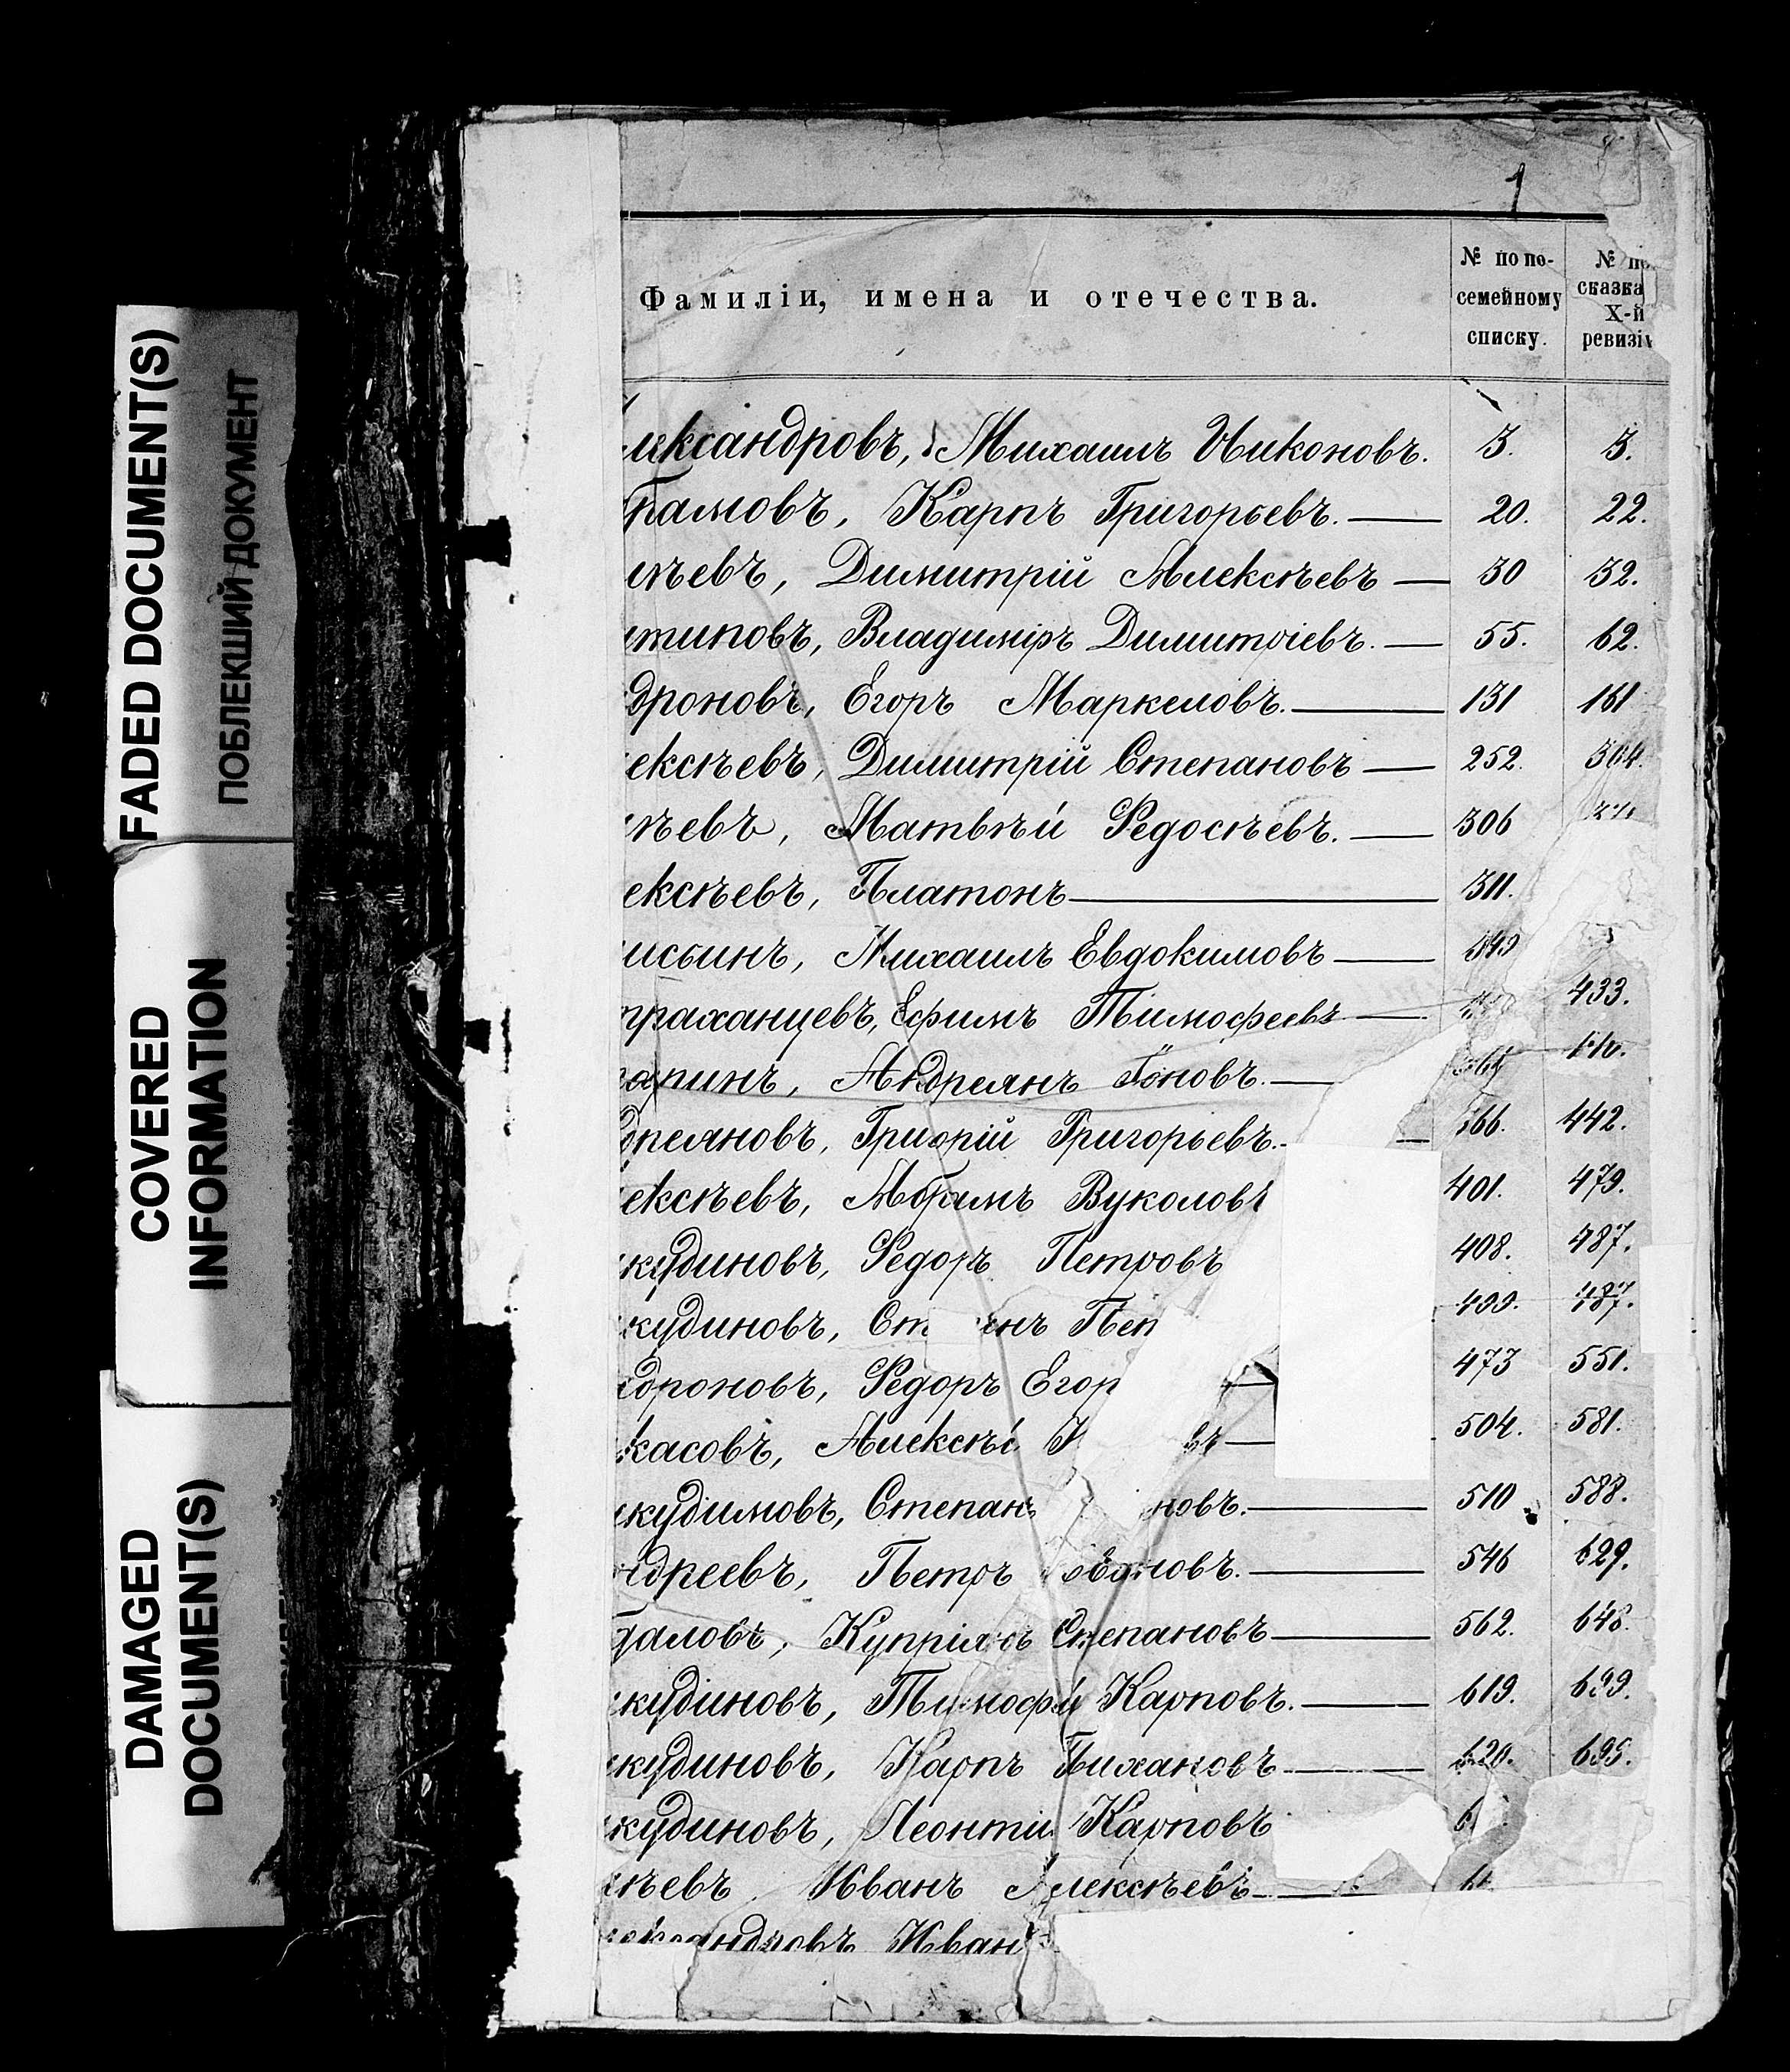 FADED DOCUMENT(S)
ПОБЛЕКШИЙ ДОКУМЕНТ
COVERED
INFORMATION
DAMAGED
DOCUMENT(S)
1
Фамиліи, имена и отечества.
№ по по-
семейному
списку.
№ по
сказка
X-й
ревизі
лександровъ, Михаилъ Никоновъ. 3. 3.
рамовъ, Карпъ Григорьевъ. 20. 22.
ѣевъ, Димитрій Алексѣевъ 30 32.
типовъ, Владиміръ Димитріевъ. 55. 62.
дроновъ, Егоръ Маркеловъ. 131 161
ексѣевъ, Димитрій Степановъ 252. 304.
ѣевъ, Матвѣй Ѳедосѣевъ. 306
ексѣевъ, Платонъ 311.
исьинъ, Михаилъ Евдокимовъ
траханцевъ, Ефимъ Тимофеевъ 433.
апинъ, Андреянъ
дреяновъ, Григорій Григорьевъ. 366. 442.
ексѣевъ, Абрамъ Вуколовъ 401. 479.
кудиновъ, Ѳедоръ Петровъ 408. 487.
кудиновъ, Ст енъ Пет 409. 487.
дроновъ, Ѳедоръ Егор 473 551.
касовъ, Алексѣй въ 504. 581.
кудимовъ, Степанъ новъ. 510 588.
ндреевъ, Петръ 546 629.
аловъ, Купріянъ Степановъ 562. 648.
кудиновъ, Тимофей Карповъ. 619. 699.
кудиновъ, Карпъ 620. 695.
кудиновъ, Леонтій Карповъ 6
ѣевъ Иванъ Алексѣевъ 6
лександровъ Иванъ